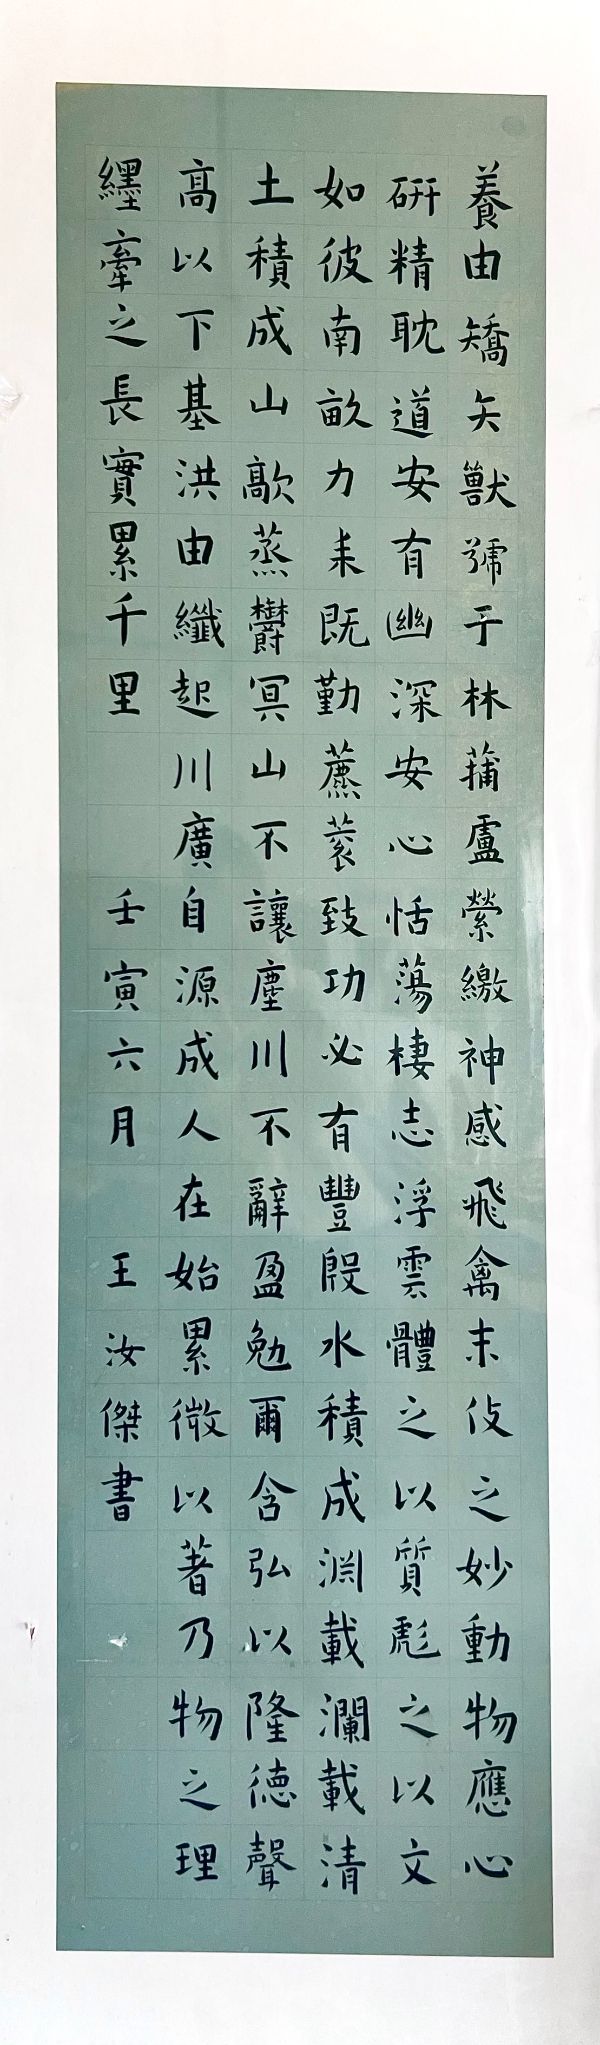 養由矯矢獸號于林蒱盧縈繳神感飛禽末伎之妙動物應心
研精耽道安有幽深安心恬蕩棲志浮雲體之以質彪之以文
如彼南畝力耒既勤藨蔉致功必有豐殷水積成淵載瀾載清
土積成山歊蒸鬱冥山不讓塵川不辭盈勉爾含弘以隆德聲
高以下基洪由纖起川廣自源成人在始累微以著乃物之理
纆牽之長實累千里
壬寅六月 王汝傑書